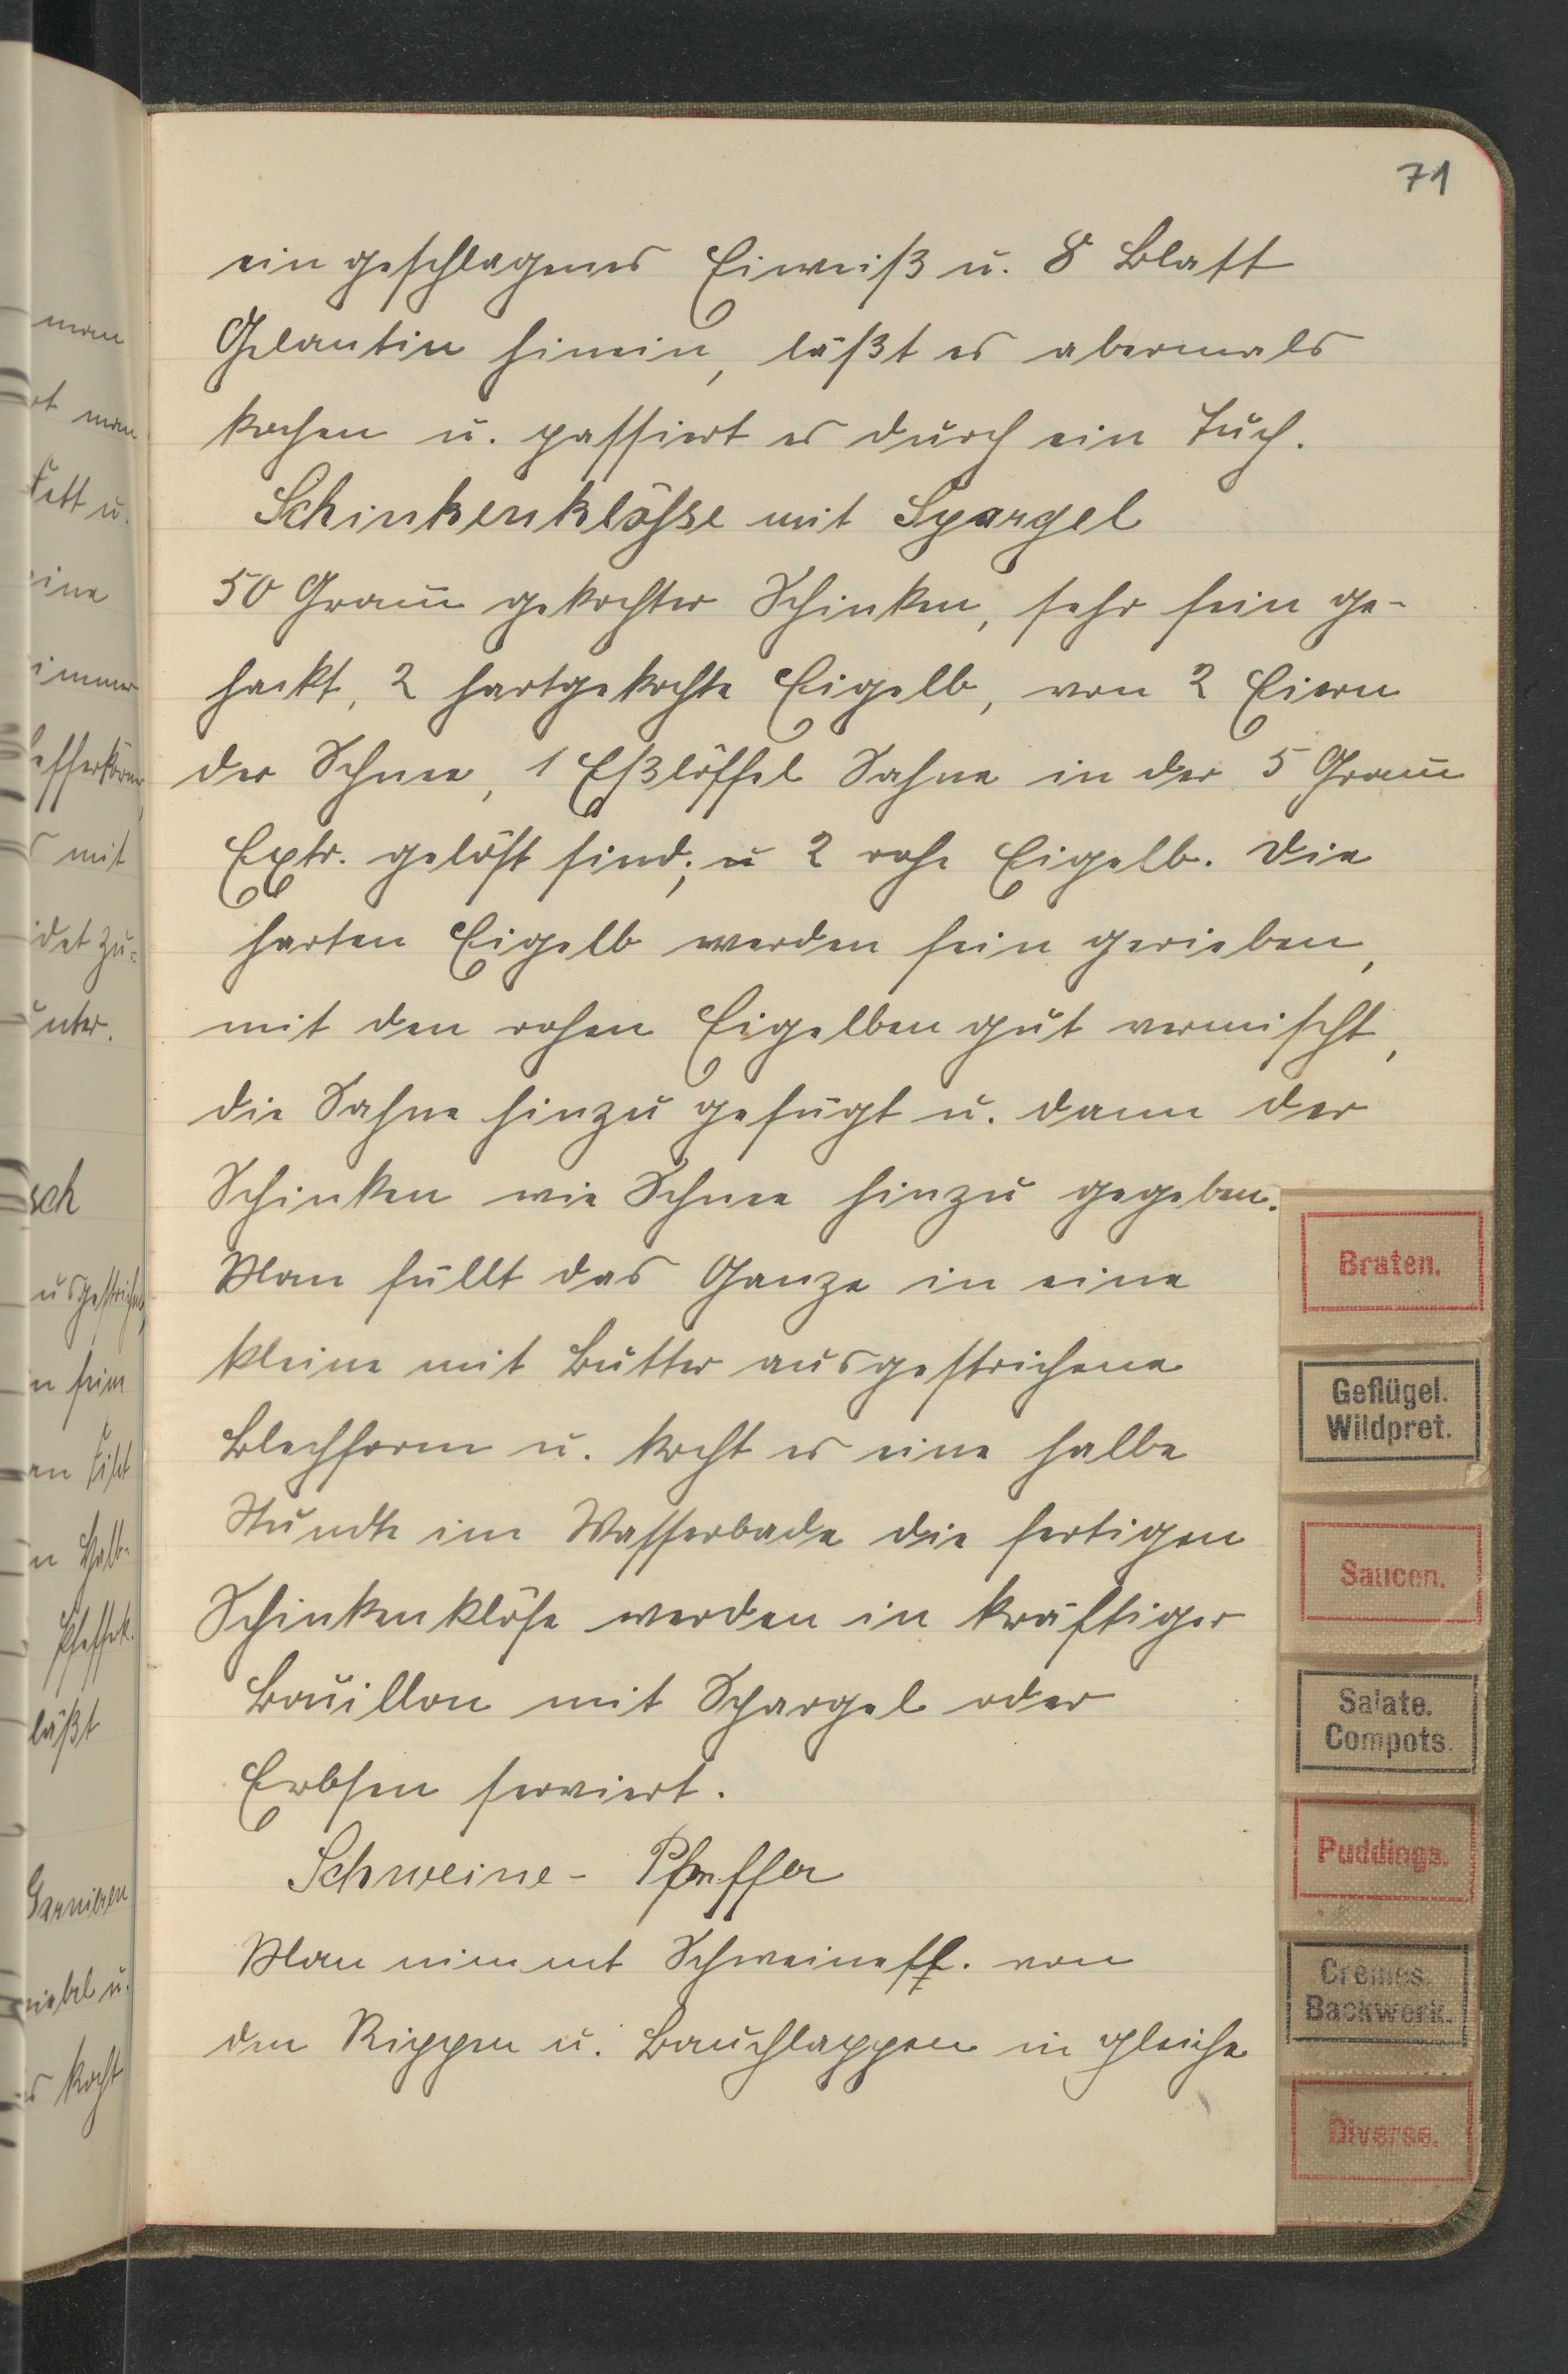 71
ein geschlagenes Eiweiß u. 8 Blatt
Gelantin hinein, läßt es abermals
kochen u. passiert es durch ein Tuch.
Schinkenklösse mit Spargel
50 Gram̅ gekochter Schinken, sehr fein ge-
hackt, 2 hartgekochte Eigelb, von 2 Eiern
der Schnee, 1 Eßlöffel Sahne in der 5 Gram̅
Extr. gelöst sind; u 2 rohe Eigelb. Die
harten Eigelb werden fein gerieben,
mit den rohen Eigelben gut vermischt,
die Sahne hinzu gefügt u. dann der
Schinken wie Schnee hinzu gegeben.
Man füllt das Ganze in eine
kleine mit Butter ausgestrichene
Blechform u. kocht es eine halbe
Stunde im Wasserbade die fertigen
Schinkenklöse werden in kräftiger
Bouillon mit Spargel oder
Erbsen serviert.
Schweine- Pfeffer
Man nimmt Schweinefl. von
den Rippen u. Bauchlappen in gleiche
Braten.
Geflügel.
Wildpret.
Saucen.
Salate.
Compots.
Puddings.
Crèmes.
Backwerk.
Diverse.
man
man
Fett u.
eine
immer
mit
unter.
sch
läßt
Garnieren
kocht